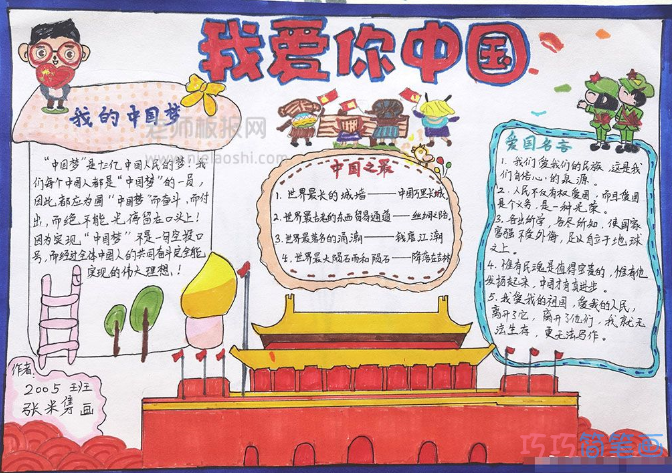 我爱你中国
我的中国梦
"中国梦"是十三亿中国人民的梦!我
们每个中国人都是"中国梦"的一员,
因此都应为圆"中国梦"而奋斗,而付
出,而绝不能光停留在口头上!
因为实现"中国梦"不是一句空投口
号,而经过全体中国人的共同奋斗完全能
实现的伟大理想!
作者:
2005班
张米 画
中国之最
1.世界最长的城墙——中国万里长城
2.世界最古老的东西贸易通道——丝绸之路
3.世界最著名的涌潮——钱唐江潮
4.世界最大陨石雨和陨石——降落吉林
爱国名言
1.我们爱我们的民族,这是我
们自信心的泉源。
2.人民不仅有权爱国,而且爱国
是个义务,是一种光荣。
3.各出所学,各尽所知,使国家
富强不受外侮,足以自立于地球
之上。
4.惟有民魂是值得宝贵的,惟有他
发扬起来,中国才有真进步。
5.我爱我的祖国,爱我的人民,
离开了它,离开了他们,我就无
法生存,更无法写作。
老师板报网
www.nkjelaoshi.com
巧巧简笔画